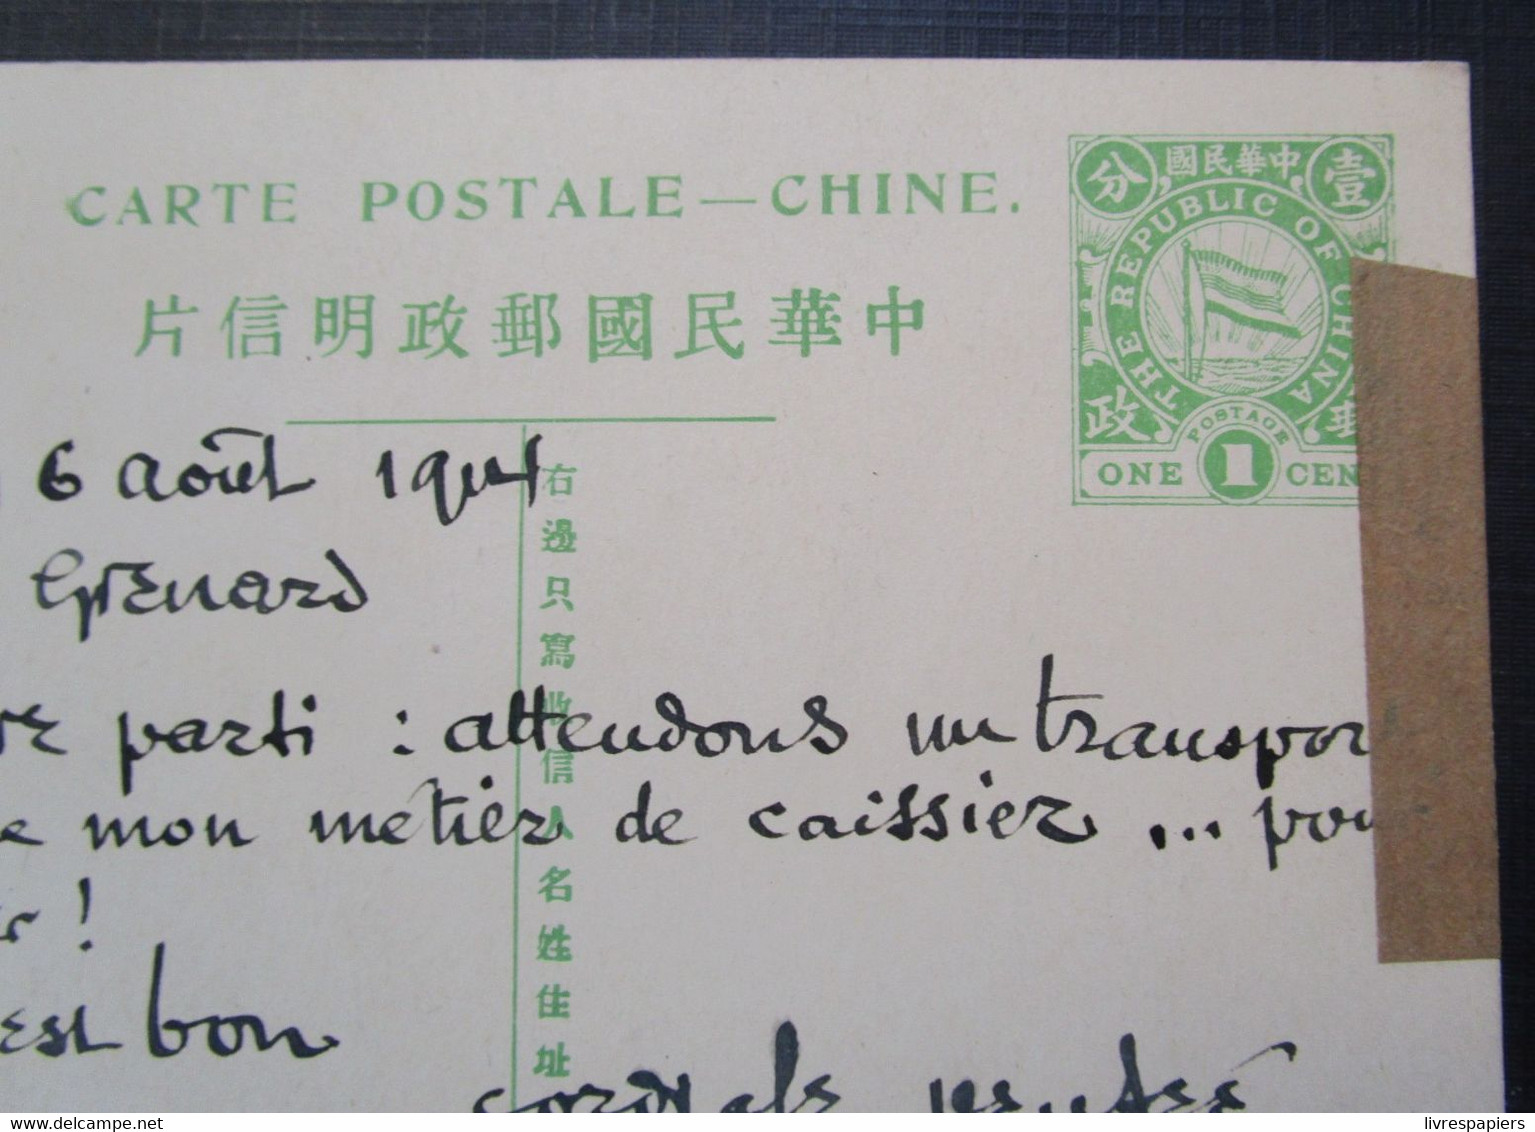 CARTE POSTALE — CHINE.
中華民國郵政明信片
中華民國
壹
分
THE REPUBLIC OF CHINA
郵
政
POSTAGE
ONE 1 CEN
右邊只寫收信人名姓住址
6 août 1914
Grénard
parti : attendons un transpor
mon métier de caissier ... pou
!
est bon
cordiale
livrespapiers.com